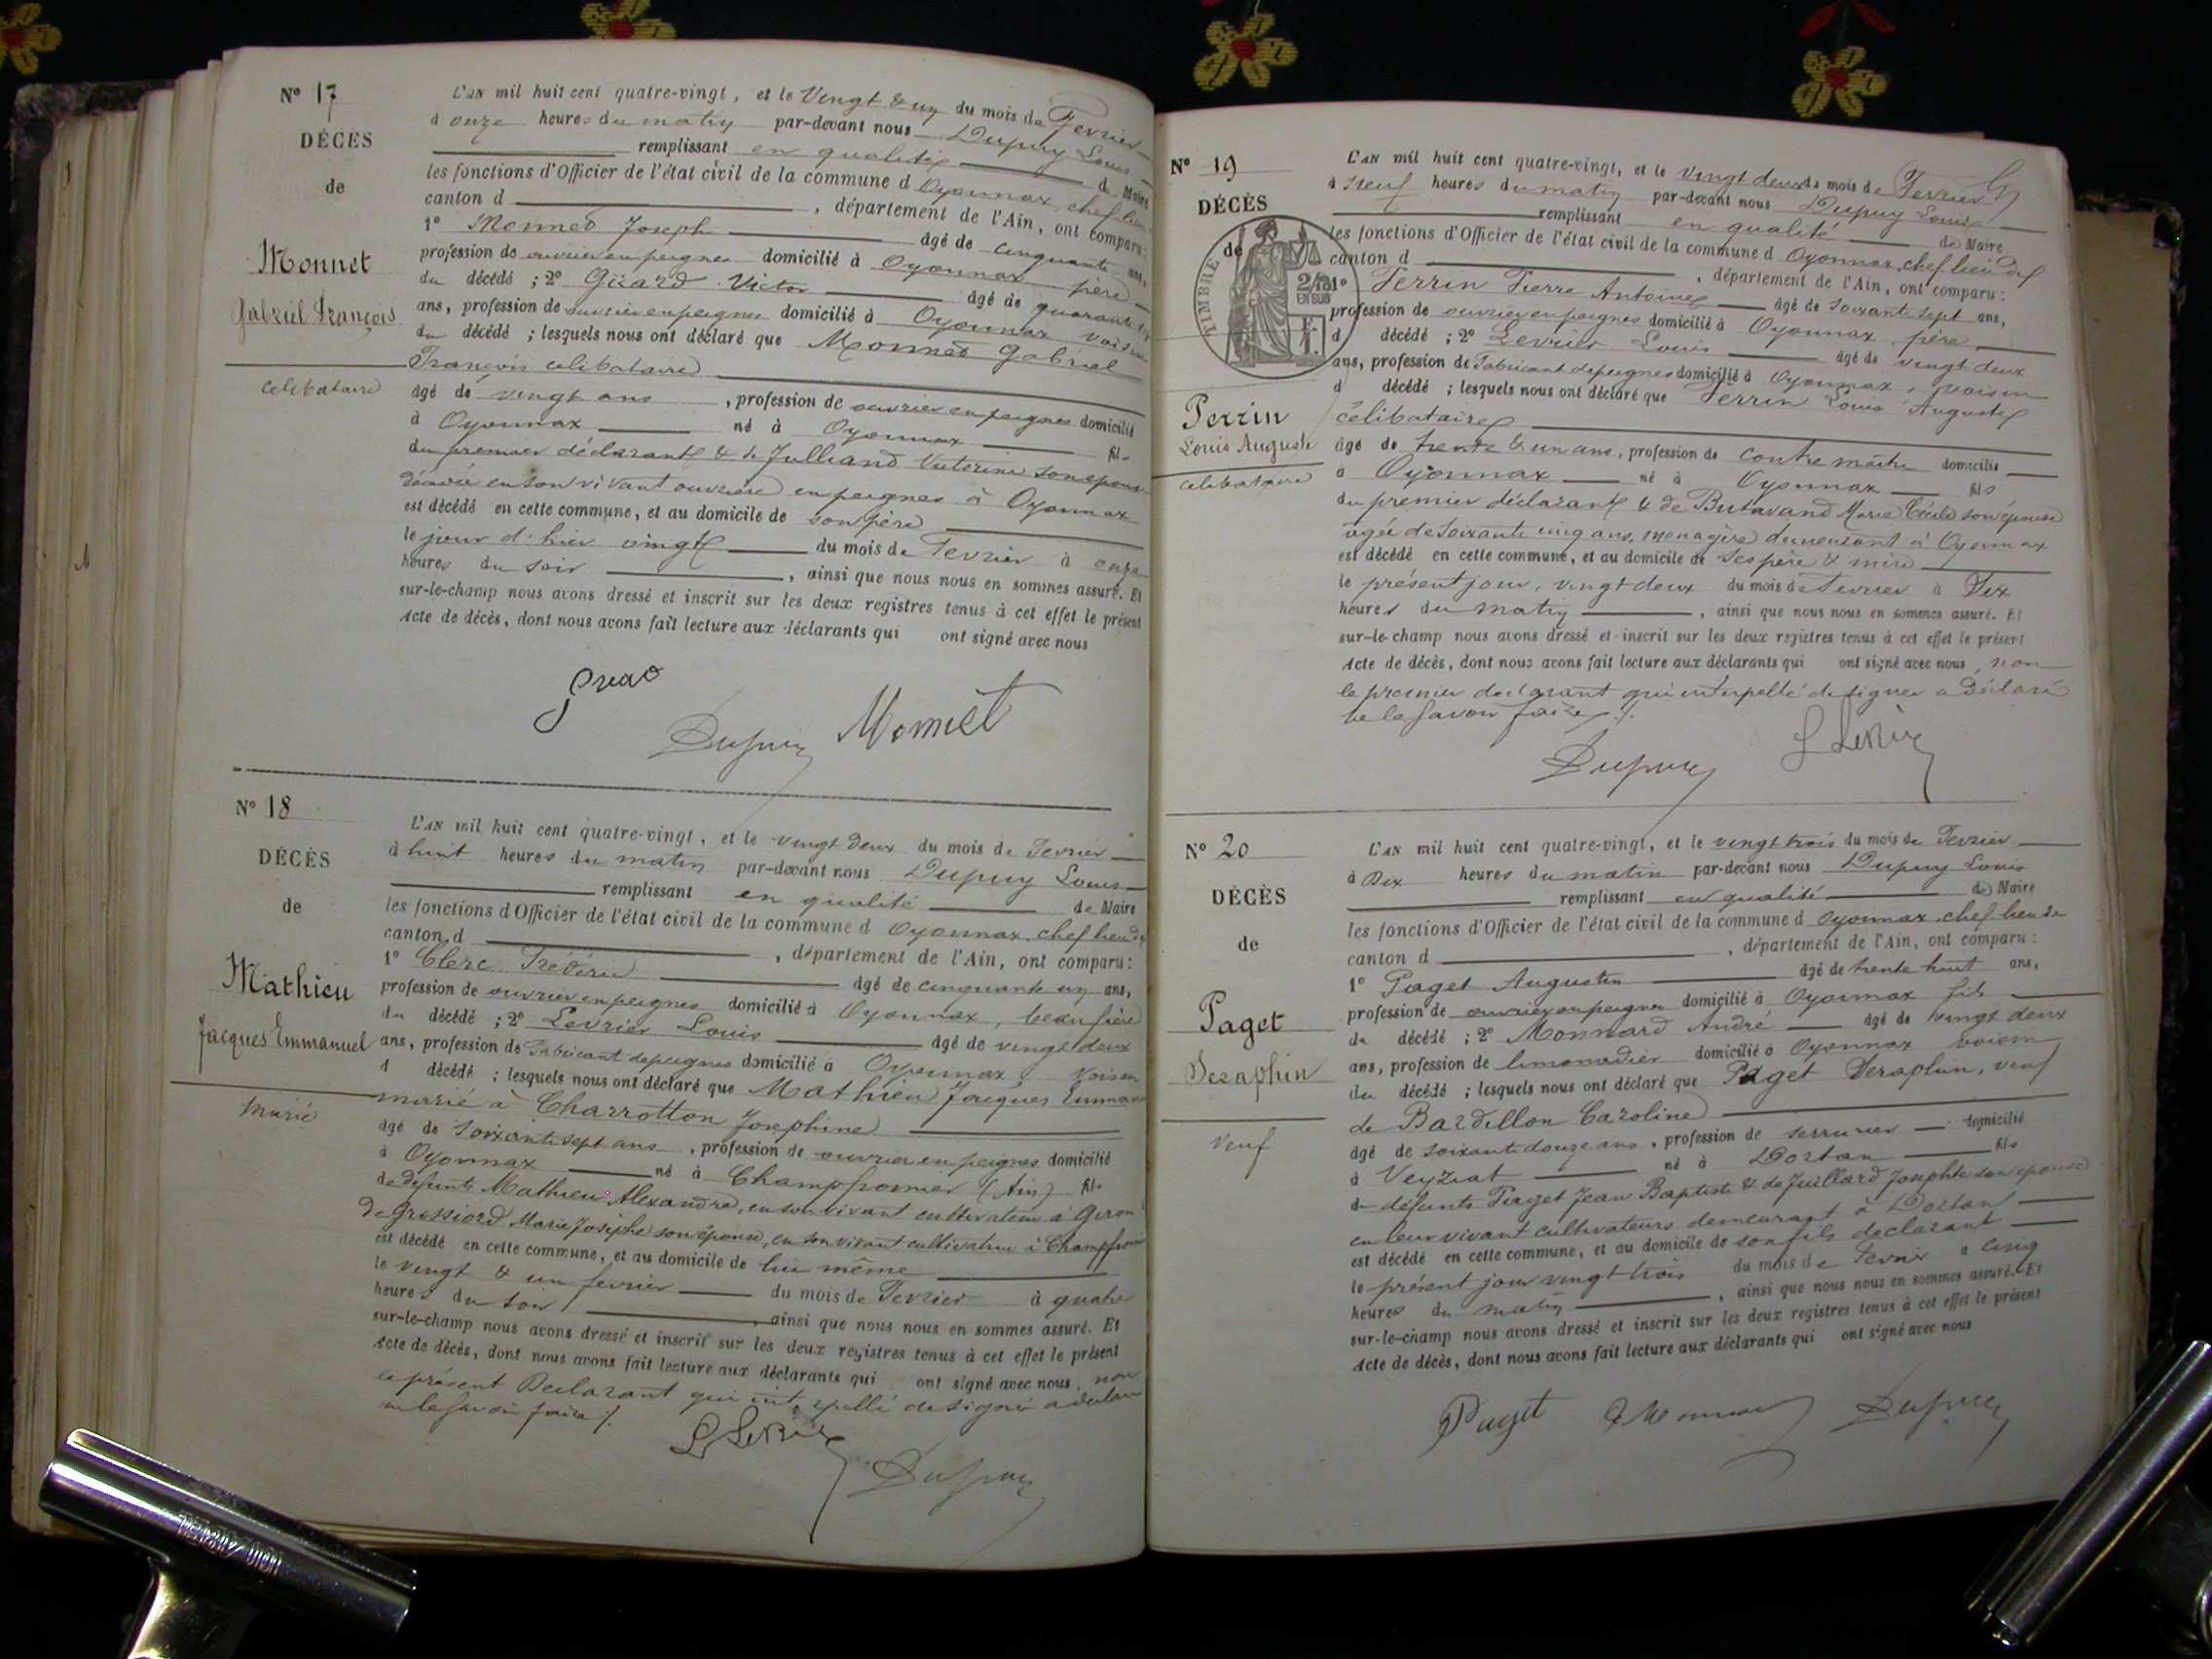 N° 17
DÉCES
de
Monnet
Gabriel François
celibataire
L'AN mil huit cent quatre-vingt, et le Vingt & un du mois de Fevrier
à onze heures du matin par-devant nous Dupuy Louis
remplissant en qualité de Maire
les fonctions d'Officier de l'état civil de la commune d Oyonnax, chef lieu
canton d , département de l'Ain, ont comparu:
1° Monnet Joseph âgé de cinquante ans,
profession de ouvrier en peignes domicilié à Oyonnax père
du décédé ; 2° Girard Victor âgé de quarante
ans, profession de ouvrier en peignes domicilié à Oyonnax voisin
du décédé ; lesquels nous ont déclaré que Monnet Gabriel
François celibataire
âgé de vingt ans , profession de ouvrier en peignes domicilié
à Oyonnax né à Oyonnax fils
du premier déclarant & de Julliand son epouse
décédée en son vivant ouvrière en peignes à Oyonnax
est décédé en cette commune, et au domicile de son père
le jour d'hier vingt du mois de Fevrier à onze
heures du soir , ainsi que nous nous en sommes assuré. Et
sur-le-champ nous avons dressé et inscrit sur les deux registres tenus à cet effet le présent
Acte de décès, dont nous avons fait lecture aux déclarants qui ont signé avec nous
Dupuy Monnet
N° 18
DÉCÈS
de
Mathieu
Jacques Emmanuel
Marié
L'AN mil huit cent quatre-vingt, et le vingt deux du mois de Fevrier
à huit heures du matin par-devant nous Dupuy Louis
remplissant en qualité de Maire
les fonctions d'Officier de l'état civil de la commune d Oyonnax, chef lieu de
canton d , département de l'Ain, ont comparu:
1° Clerc Frédéric âgé de cinquante un ans,
profession de ouvrier en peignes domicilié à Oyonnax, beau frère
du décédé ; 2° Levrier Louis âgé de vingt deux
ans, profession de Fabricant de peignes domicilié à Oyonnax, voisin
d décédé ; lesquels nous ont déclaré que Mathieu Jacques Emmanuel
marié à Charrotton Josephine
âgé de soixante sept ans , profession de ouvrier en peignes domicilié
à Oyonnax né à Champfromier (Ain) fils
de defunts Mathieu Alexandre, en son vivant cultivateur à Giron
De Grossiord Marie Josephe son épouse, en son vivant cultivatrice à Champfromier
est décédé en cette commune, et au domicile de lui même
le vingt & un fevrier du mois de Fevrier à quatre
heures du soir , ainsi que nous nous en sommes assuré. Et
sur-le-champ nous avons dressé et inscrit sur les deux registres tenus à cet effet le présent
Acte de décès, dont nous avons fait lecture aux déclarants qui ont signé avec nous, non
le présent Declarant qui interpellé de signé a declaré
ne le savoir faire ./.
L Levrier
Dupuy
N° 19
DÉCÈS
de
TIMBRE
2/10
EN SUS
Perrin
Louis Auguste
celibataire
L'AN mil huit cent quatre-vingt, et le vingt deux du mois de Fevrier
à Neuf heures du matin par-devant nous Dupuy Louis
remplissant en qualité de Maire
les fonctions d'Officier de l'état civil de la commune d Oyonnax, chef lieu de
canton d , département de l'Ain, ont comparu:
1° Perrin Pierre Antoine âgé de soixante sept ans,
profession de ouvrier en peignes domicilié à Oyonnax, père
d décédé ; 2° Levrier Louis âgé de vingt deux
ans, profession de Fabricant de peignes domicilié à Oyonnax, voisin
d décédé ; lesquels nous ont déclaré que Perrin Louis Auguste
célibataire
âgé de trente & un ans, profession de contre maître domicilié
à Oyonnax né à Oyonnax fils
du premier déclarant & de Butavand Marie Cécile son épouse
agée de soixante cinq ans, menagère demeurant à Oyonnax
est décédé en cette commune, et au domicile de ses père & mère
le présent jour, vingt deux du mois de Fevrier à Six
heures du matin , ainsi que nous nous en sommes assuré. Et
sur-le-champ nous avons dressé et inscrit sur les deux registres tenus à cet effet le présent
Acte de décès, dont nous avons fait lecture aux déclarants qui ont signé avec nous, non
le premier declarant qui interpellé de signer a déclaré
ne le savoir faire ./.
Dupuy L Levrier
N° 20
DÉCÈS
de
Paget
Seraphin
Veuf
L'AN mil huit cent quatre-vingt, et le vingt trois du mois de Fevrier
à Dix heures du matin par-devant nous Dupuy Louis
remplissant en qualité de Maire
les fonctions d'Officier de l'état civil de la commune d Oyonnax, chef lieu de
canton d , département de l'Ain, ont comparu:
1° Paget Augustin âgé de trente huit ans,
profession de ouvrier en peignes domicilié à Oyonnax fils
du décédé ; 2° Monnard André âgé de vingt deux
ans, profession de limonadier domicilié à Oyonnax voisin
du décédé ; lesquels nous ont déclaré que Paget Seraphin, veuf
de Bardillon Caroline
âgé de soixante douze ans, profession de serrurier domicilié
à Veyziat né à Dortan fils
de défunts Paget Jean Baptiste & de Juillard Josephte son epouse
en leur vivant cultivateurs demeurant à Dortan
est décédé en cette commune, et au domicile de son fils declarant
le présent jour vingt trois du mois de Fevrier à cinq
heures du matin , ainsi que nous nous en sommes assuré. Et
sur-le-champ nous avons dressé et inscrit sur les deux registres tenus à cet effet le présent
Acte de décès, dont nous avons fait lecture aux déclarants qui ont signé avec nous
Paget A Monnard Dupuy